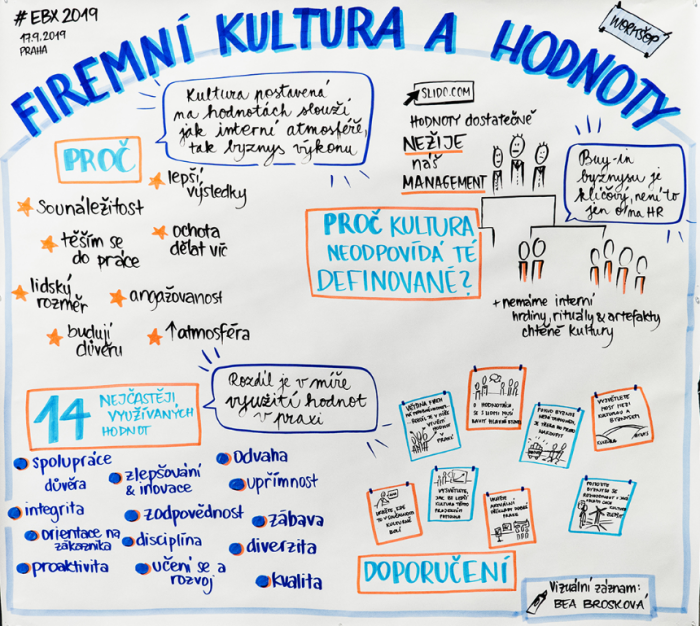 #EBX 2019
17.9.2019
PRAHA
FIREMNÍ KULTURA A HODNOTY
WORKSHOP
Kultura postavená
na hodnotách slouží
jak interní atmosféře,
tak byznys výkonu
PROČ
lepší
výsledky
sounáležitost
těším se
do práce
ochota
dělat víc
lidský
rozměr
angažovanost
budují
důvěru
↑atmosféra
SLIDO.COM
HODNOTY DOSTATEČNĚ
NEŽIJE
náš
MANAGEMENT
Buy-in
byznysu je
klíčový, není to
jen o/na HR
PROČ KULTURA
NEODPOVÍDÁ TÉ
DEFINOVANÉ?
+ nemáme interní
hrdiny, rituály & artefakty
chtěné kultury
14 NEJČASTĚJI
VYUŽÍVANÝCH
HODNOT
Rozdíl je v míře
využití hodnot
v praxi
spolupráce
důvěra
zlepšování
& inovace
Odvaha
upřímnost
integrita
zodpovědnost
zábava
orientace na
zákazníka
disciplína
diverzita
proaktivita
učení se a
rozvoj
kvalita
O HODNOTÁCH
SE S LIDMI MUSÍ
VYSVĚTLETE
MOST MEZI
KULTUROU A
BYZNYSEM
DOPORUČENÍ
Vizuální záznam:
BEA BROSKOVÁ